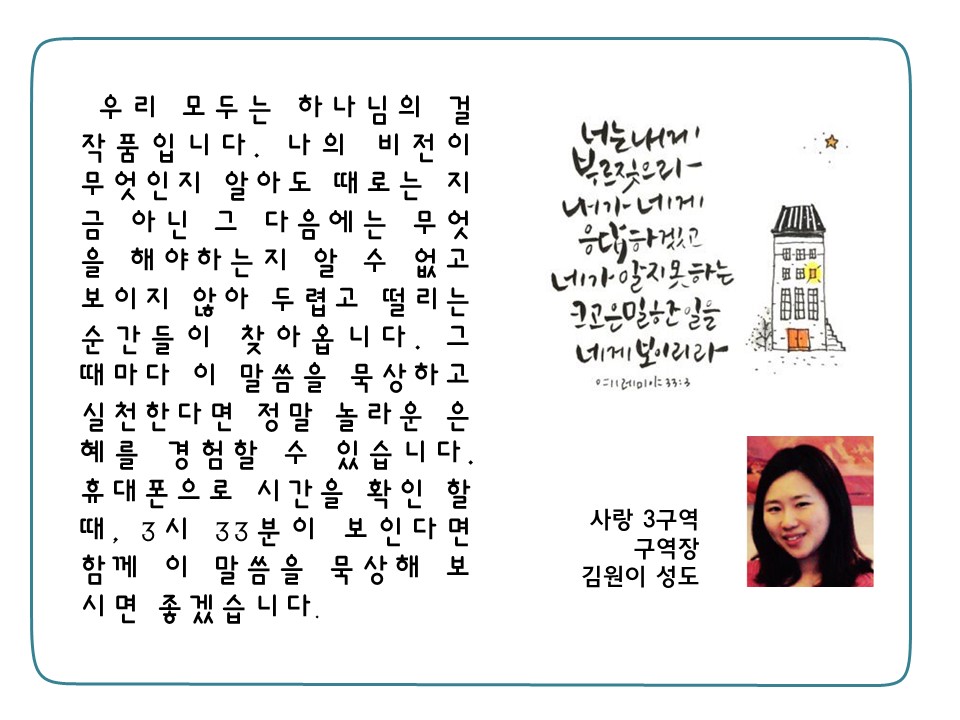 우리 모두는 하나님의 걸
작품입니다. 나의 비전이
무엇인지 알아도 때로는 지
금 아닌 그 다음에는 무엇
을 해야하는지 알 수 없고
보이지 않아 두렵고 떨리는
순간들이 찾아옵니다. 그
때마다 이 말씀을 묵상하고
실천한다면 정말 놀라운 은
혜를 경험할 수 있습니다.
휴대폰으로 시간을 확인 할
때, 3시 33분이 보인다면
함께 이 말씀을 묵상해 보
시면 좋겠습니다.
너는 내게
부르짖으라
내가 네게
응답하겠고
네가 알지 못하는
크고 은밀한 일을
네게 보이리라
예레미야 33:3
사랑 3구역
구역장
김원이 성도